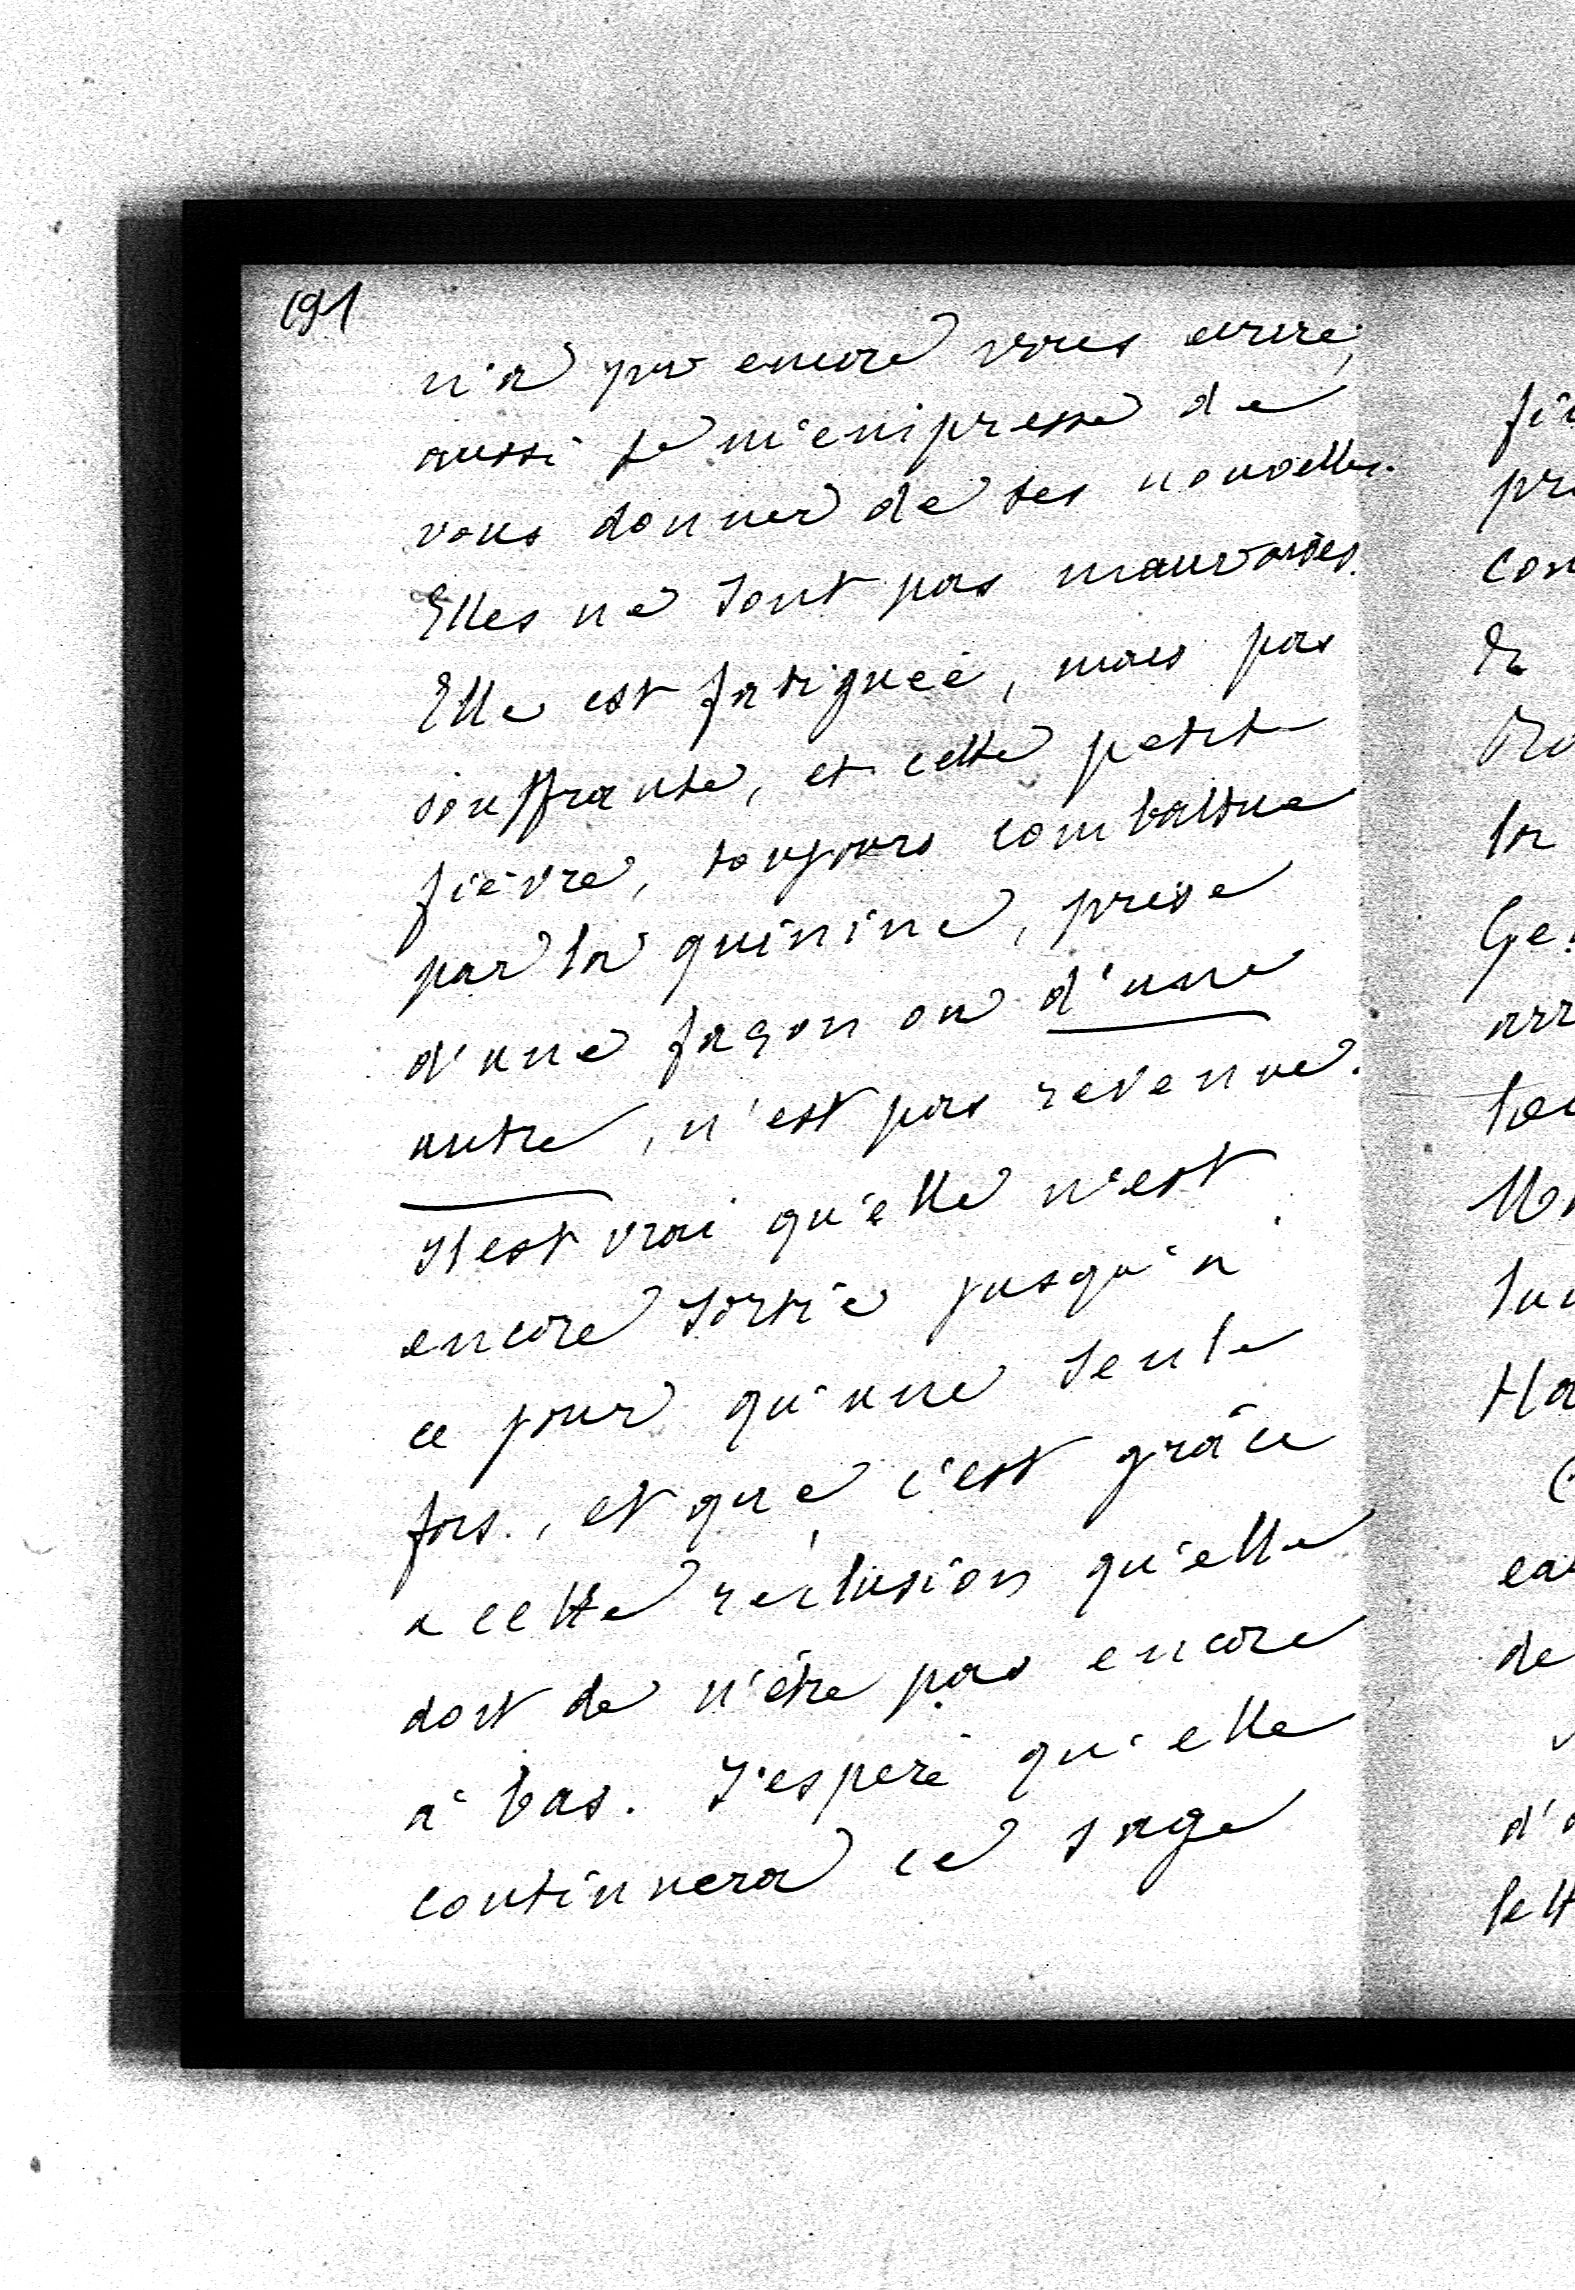 191
n'a pu encore vous écrire,
aussi je m'empresse de
vous donner de ses nouvelles.
Elles ne sont pas mauvaises.
Elle est fatiguée, mais pas
souffrante, et cette petite
fièvre, toujours combattue
par la quinine, prise
d'une façon ou d'une
autre, n'est pas revenue.
Il est vrai qu'elle n'est
encore sortie jusqu'à
ce jour qu'une seule
fois, et que c'est grâce
a cette réclusion qu'elle
doit de n'être pas encore
à bas. J'espère qu'elle
continuera ce sage